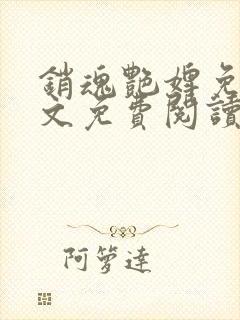 銷魂艷婢免
文免費閱讀
阿箩達